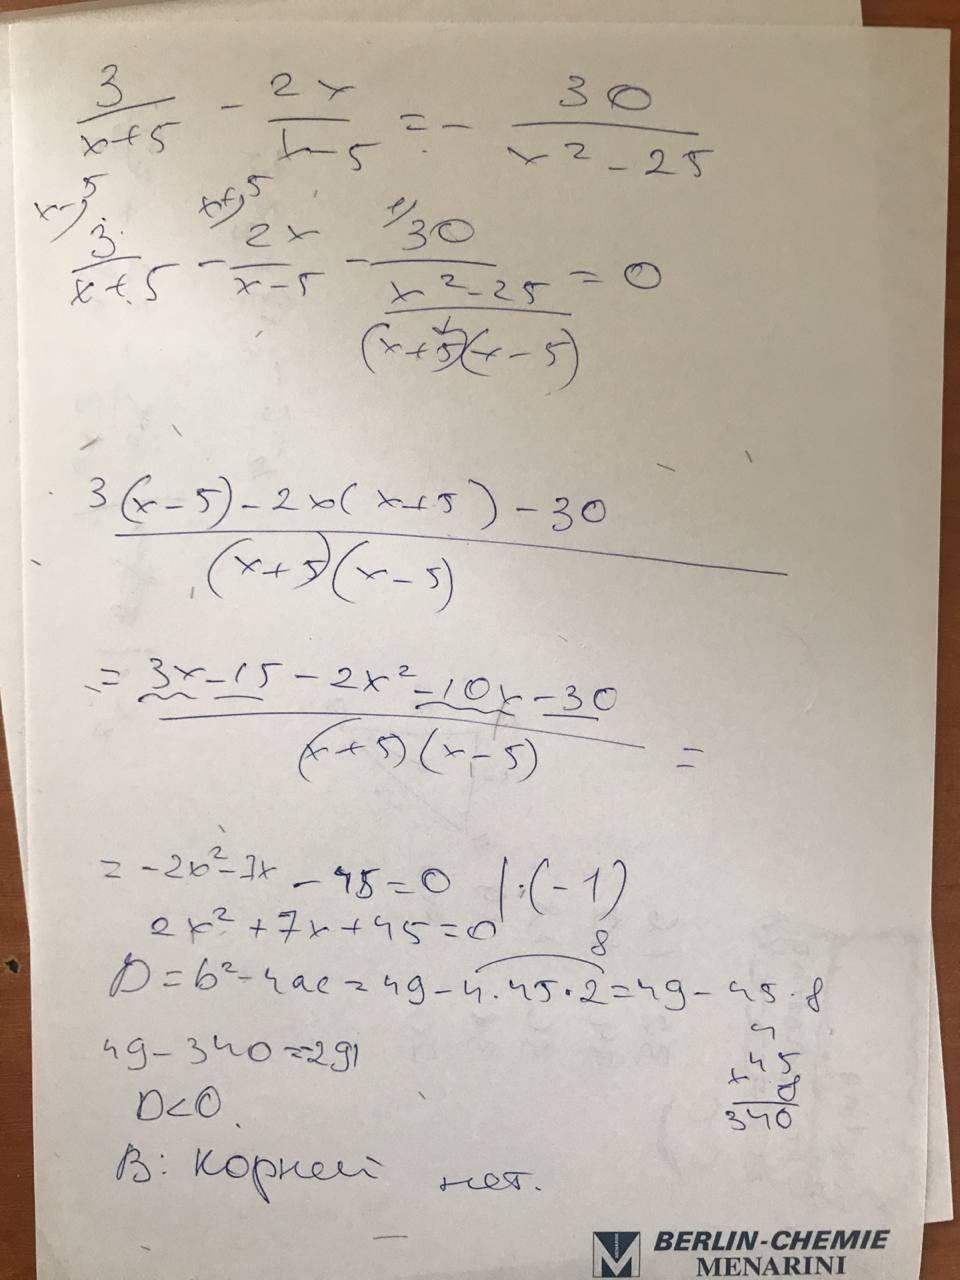 3/(x+5) - 2x/(x-5) = - 30/(x² - 25)
x-5 x+5 1
3/(x+5) - 2x/(x-5) - 30/(x² - 25) = 0
(x+5)(x-5)
3(x-5) - 2x(x+5) - 30
(x+5)(x-5)
= 3x - 15 - 2x² - 10x - 30
(x+5)(x-5) =
= -2x² - 7x - 45 = 0 | :(-1)
2x² + 7x + 45 = 0
8
D = b² - 4ac = 49 - 4·45·2 = 49 - 45·8
4
49 - 340 = -291
x 45
8
340
D<0.
В: Корней нет.
BERLIN-CHEMIE
MENARINI